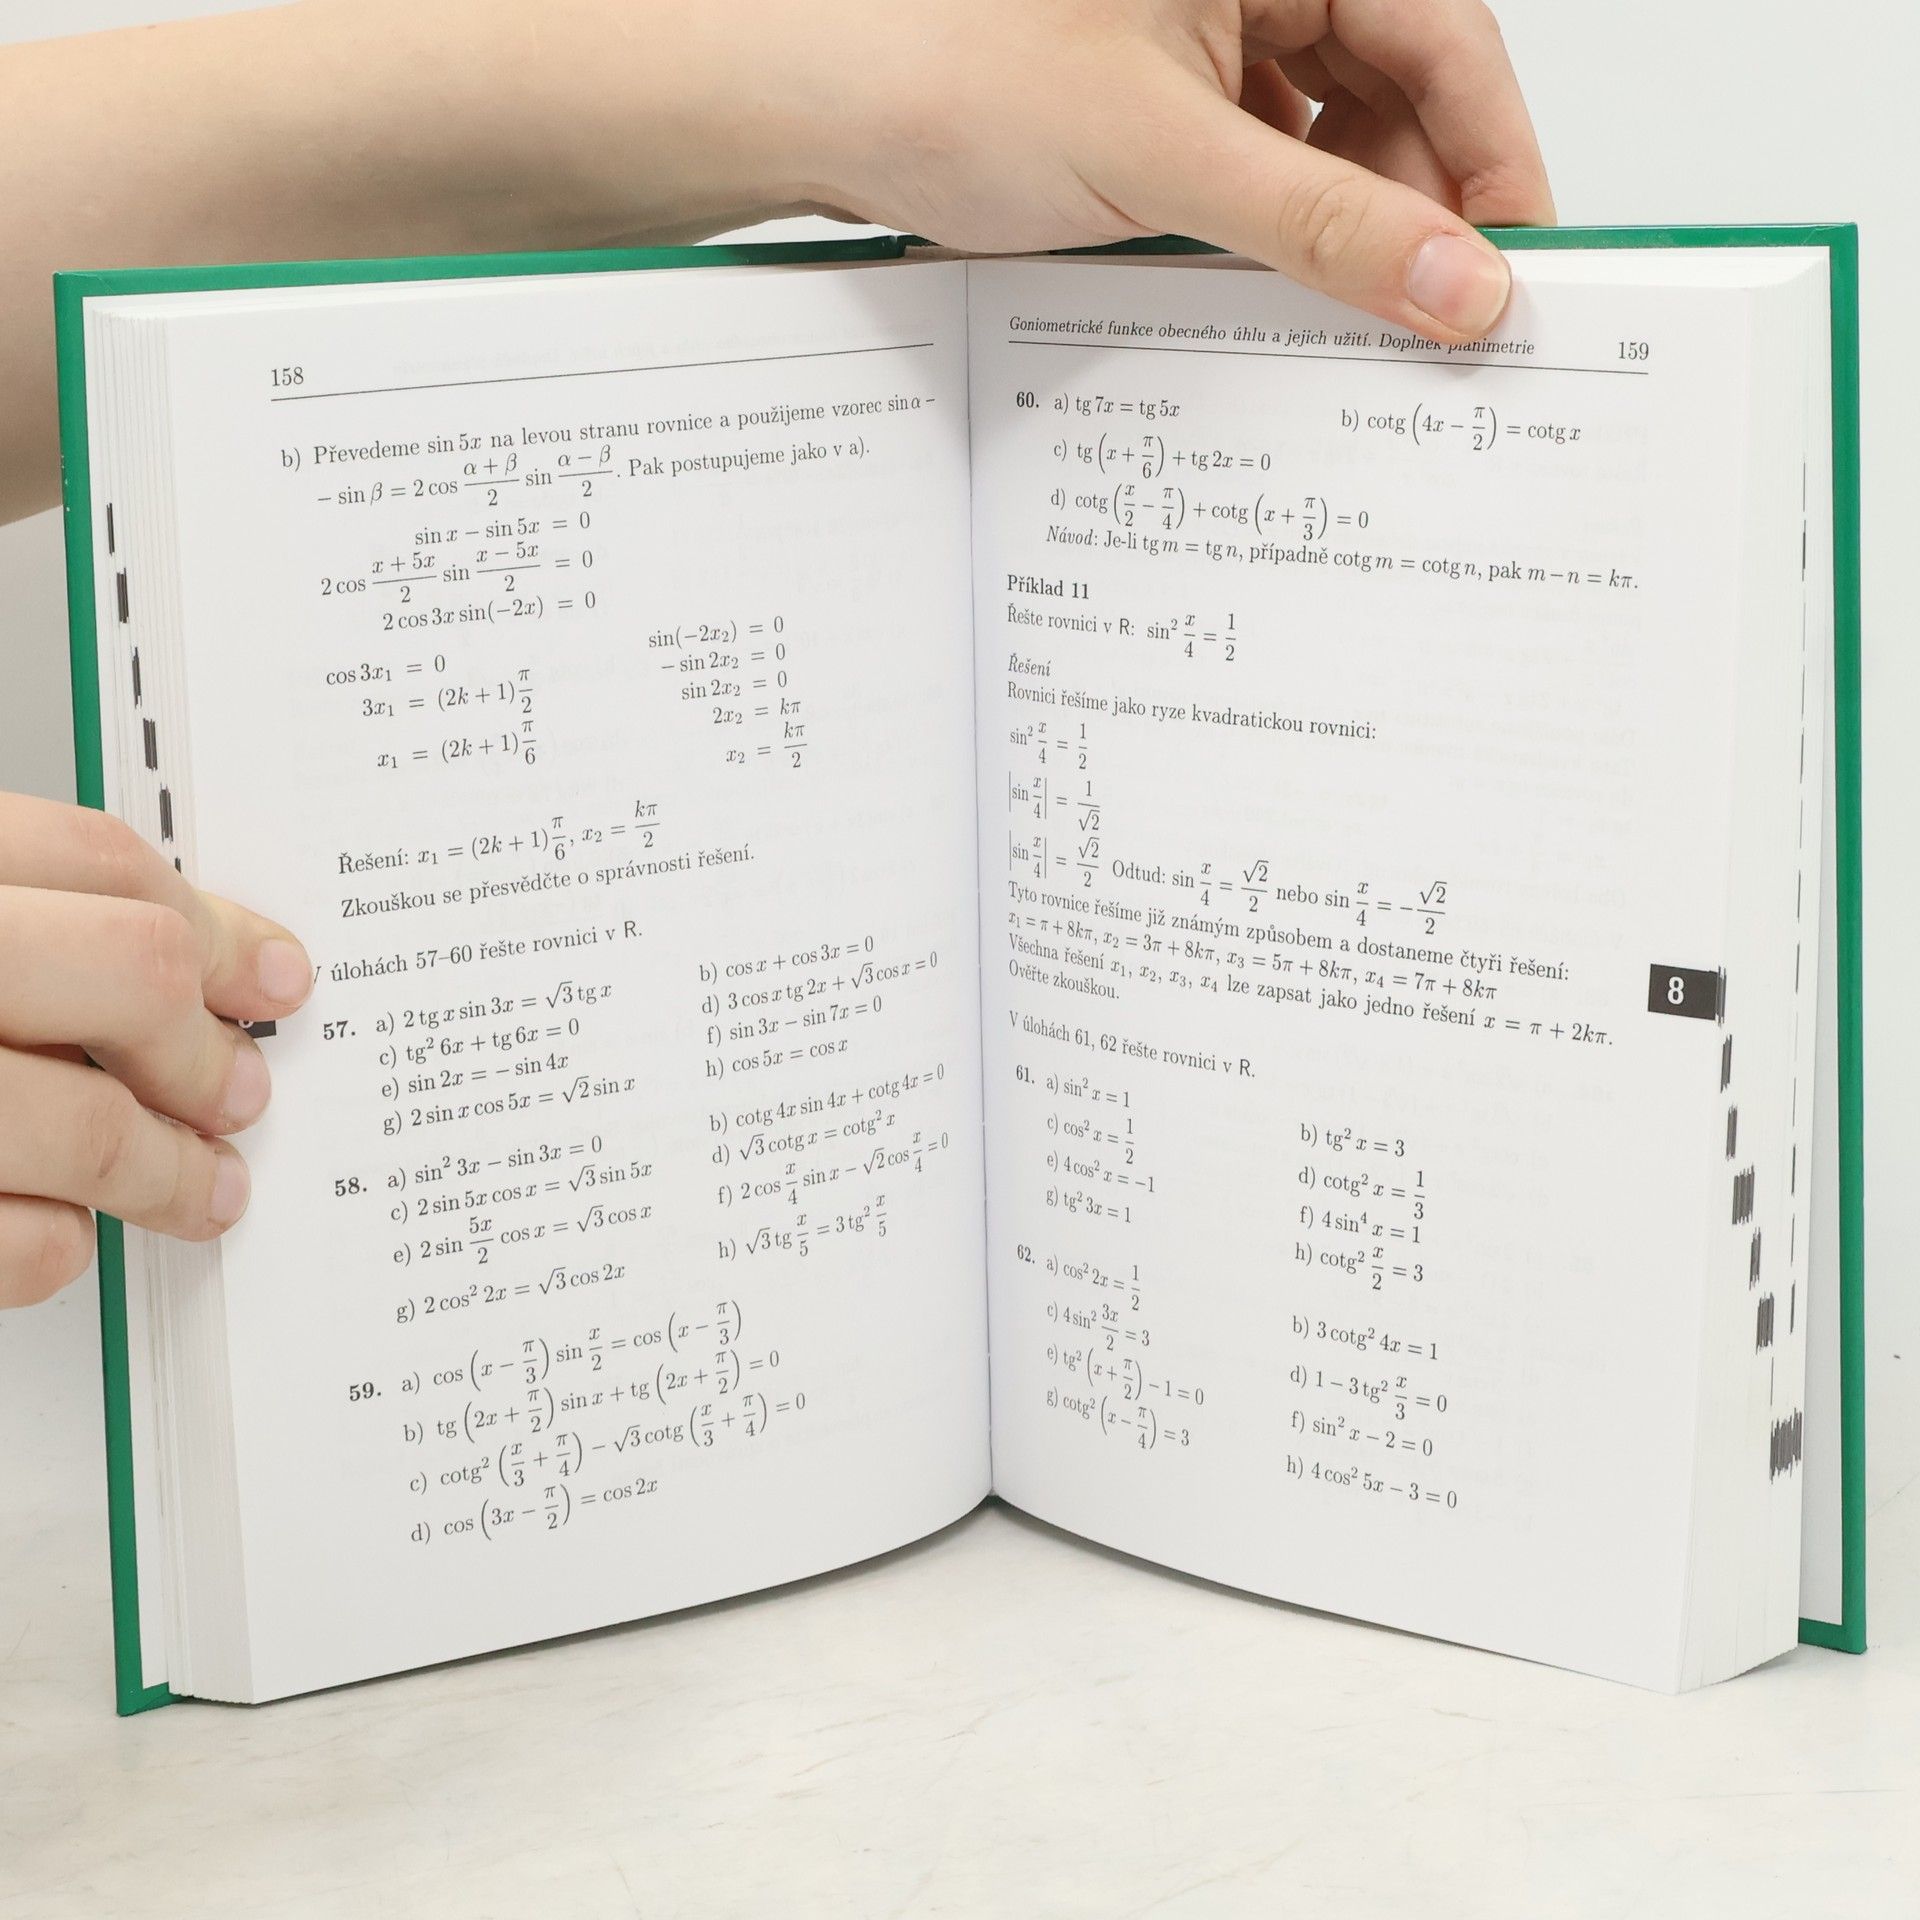 158
b) Převedeme sin 5x na levou stranu rovnice a použijeme vzorec sin α −
− sin β = 2 cos (α + β)/2 sin (α − β)/2. Pak postupujeme jako v a).
sin x − sin 5x = 0
2 cos (x + 5x)/2 sin (x − 5x)/2 = 0
2 cos 3x sin(−2x) = 0
cos 3x₁ = 0 sin(−2x₂) = 0
3x₁ = (2k + 1) π/2 − sin 2x₂ = 0
sin 2x₂ = 0
x₁ = (2k + 1) π/6 2x₂ = kπ
x₂ = kπ/2
Řešení: x₁ = (2k + 1) π/6, x₂ = kπ/2
Zkouškou se přesvědčte o správnosti řešení.
úlohách 57–60 řešte rovnici v R.
57. a) 2 tg x sin 3x = √3 tg x b) cos x + cos 3x = 0
c) tg² 6x + tg 6x = 0 d) 3 cos x tg 2x + √3 cos x = 0
e) sin 2x = − sin 4x f) sin 3x − sin 7x = 0
g) 2 sin x cos 5x = √2 sin x h) cos 5x = cos x
58. a) sin² 3x − sin 3x = 0 b) cotg 4x sin 4x + cotg 4x = 0
c) 2 sin 5x cos x = √3 sin 5x d) √3 cotg x = cotg² x
e) 2 sin 5x/2 cos x = √3 cos x f) 2 cos x/4 sin x − √2 cos x/4 = 0
g) 2 cos² 2x = √3 cos 2x h) √3 tg x/5 = 3 tg² x/5
59. a) cos (x − π/3) sin x/2 = cos (x − π/3)
b) tg (2x + π/2) sin x + tg (2x + π/2) = 0
c) cotg² (x/3 + π/4) − √3 cotg (x/3 + π/4) = 0
d) cos (3x − π/2) = cos 2x
Goniometrické funkce obecného úhlu a jejich užití. Doplněk planimetrie 159
60. a) tg 7x = tg 5x b) cotg (4x − π/2) = cotg x
c) tg (x + π/6) + tg 2x = 0
d) cotg (x/2 − π/4) + cotg (x + π/3) = 0
Návod: Je-li tg m = tg n, případně cotg m = cotg n, pak m − n = kπ.
Příklad 11
Řešte rovnici v R: sin² x/4 = 1/2
Řešení
Rovnici řešíme jako ryze kvadratickou rovnici:
sin² x/4 = 1/2
|sin x/4| = 1/√2
|sin x/4| = √2/2 Odtud: sin x/4 = √2/2 nebo sin x/4 = −√2/2
Tyto rovnice řešíme již známým způsobem a dostaneme čtyři řešení:
x₁ = π + 8kπ, x₂ = 3π + 8kπ, x₃ = 5π + 8kπ, x₄ = 7π + 8kπ
Všechna řešení x₁, x₂, x₃, x₄ lze zapsat jako jedno řešení x = π + 2kπ.
Ověřte zkouškou.
8
V úlohách 61, 62 řešte rovnici v R.
61. a) sin² x = 1 b) tg² x = 3
c) cos² x = 1/2 d) cotg² x = 1/3
e) 4 cos² x = −1 f) 4 sin⁴ x = 1
g) tg² 3x = 1 h) cotg² x/2 = 3
62. a) cos² 2x = 1/2 b) 3 cotg² 4x = 1
c) 4 sin² 3x/2 = 3 d) 1 − 3 tg² x/3 = 0
e) tg² (x + π/2) − 1 = 0 f) sin² x − 2 = 0
g) cotg² (x − π/4) = 3 h) 4 cos² 5x − 3 = 0